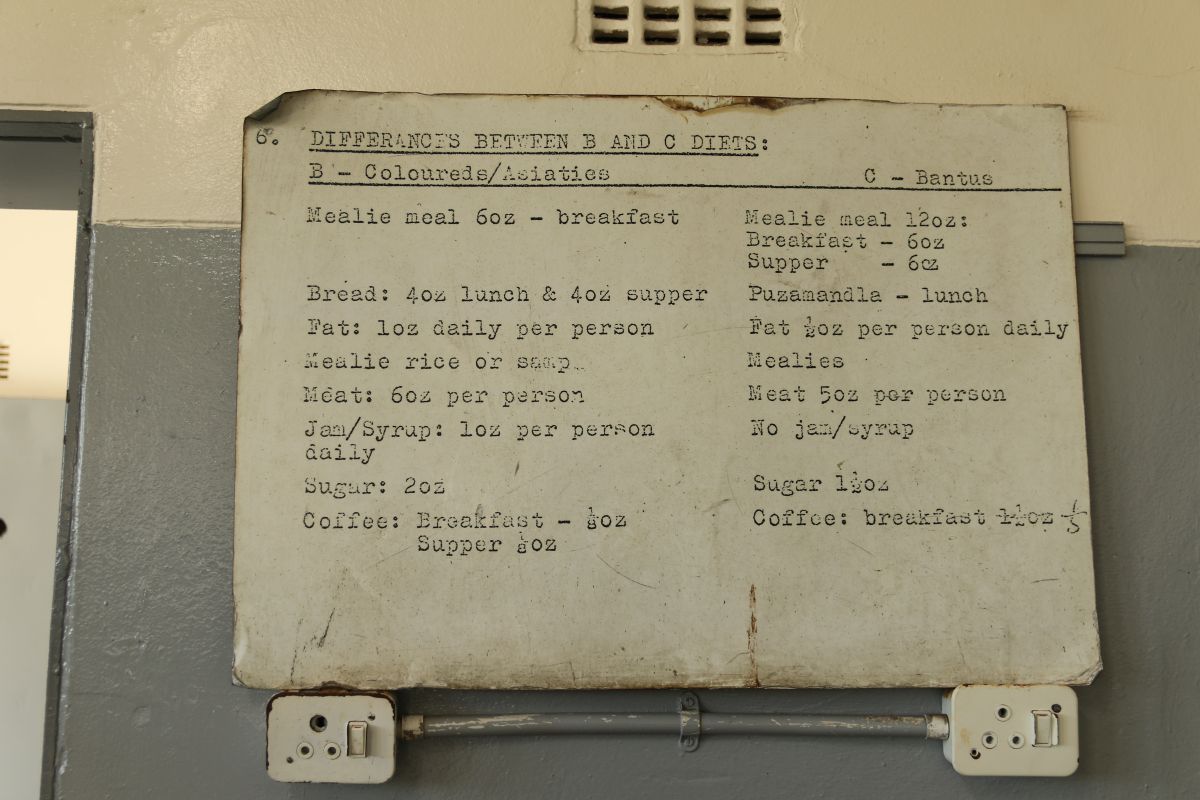 6. DIFFERANCES BETWEEN B AND C DIETS:
B - Coloureds/Asiaties C - Bantus
Mealie meal 6oz - breakfast Mealie meal 12oz:
Breakfast - 6oz
Supper - 6oz
Bread: 4oz lunch & 4oz supper Puzamandla - lunch
Fat: 1oz daily per person Fat ½oz per person daily
Mealie rice or samp Mealies
Meat: 6oz per person Meat 5oz per person
Jam/Syrup: 1oz per person No jam/syrup
daily
Sugar: 2oz Sugar 1½oz
Coffee: Breakfast - oz Coffee: breakfast oz
Supper oz